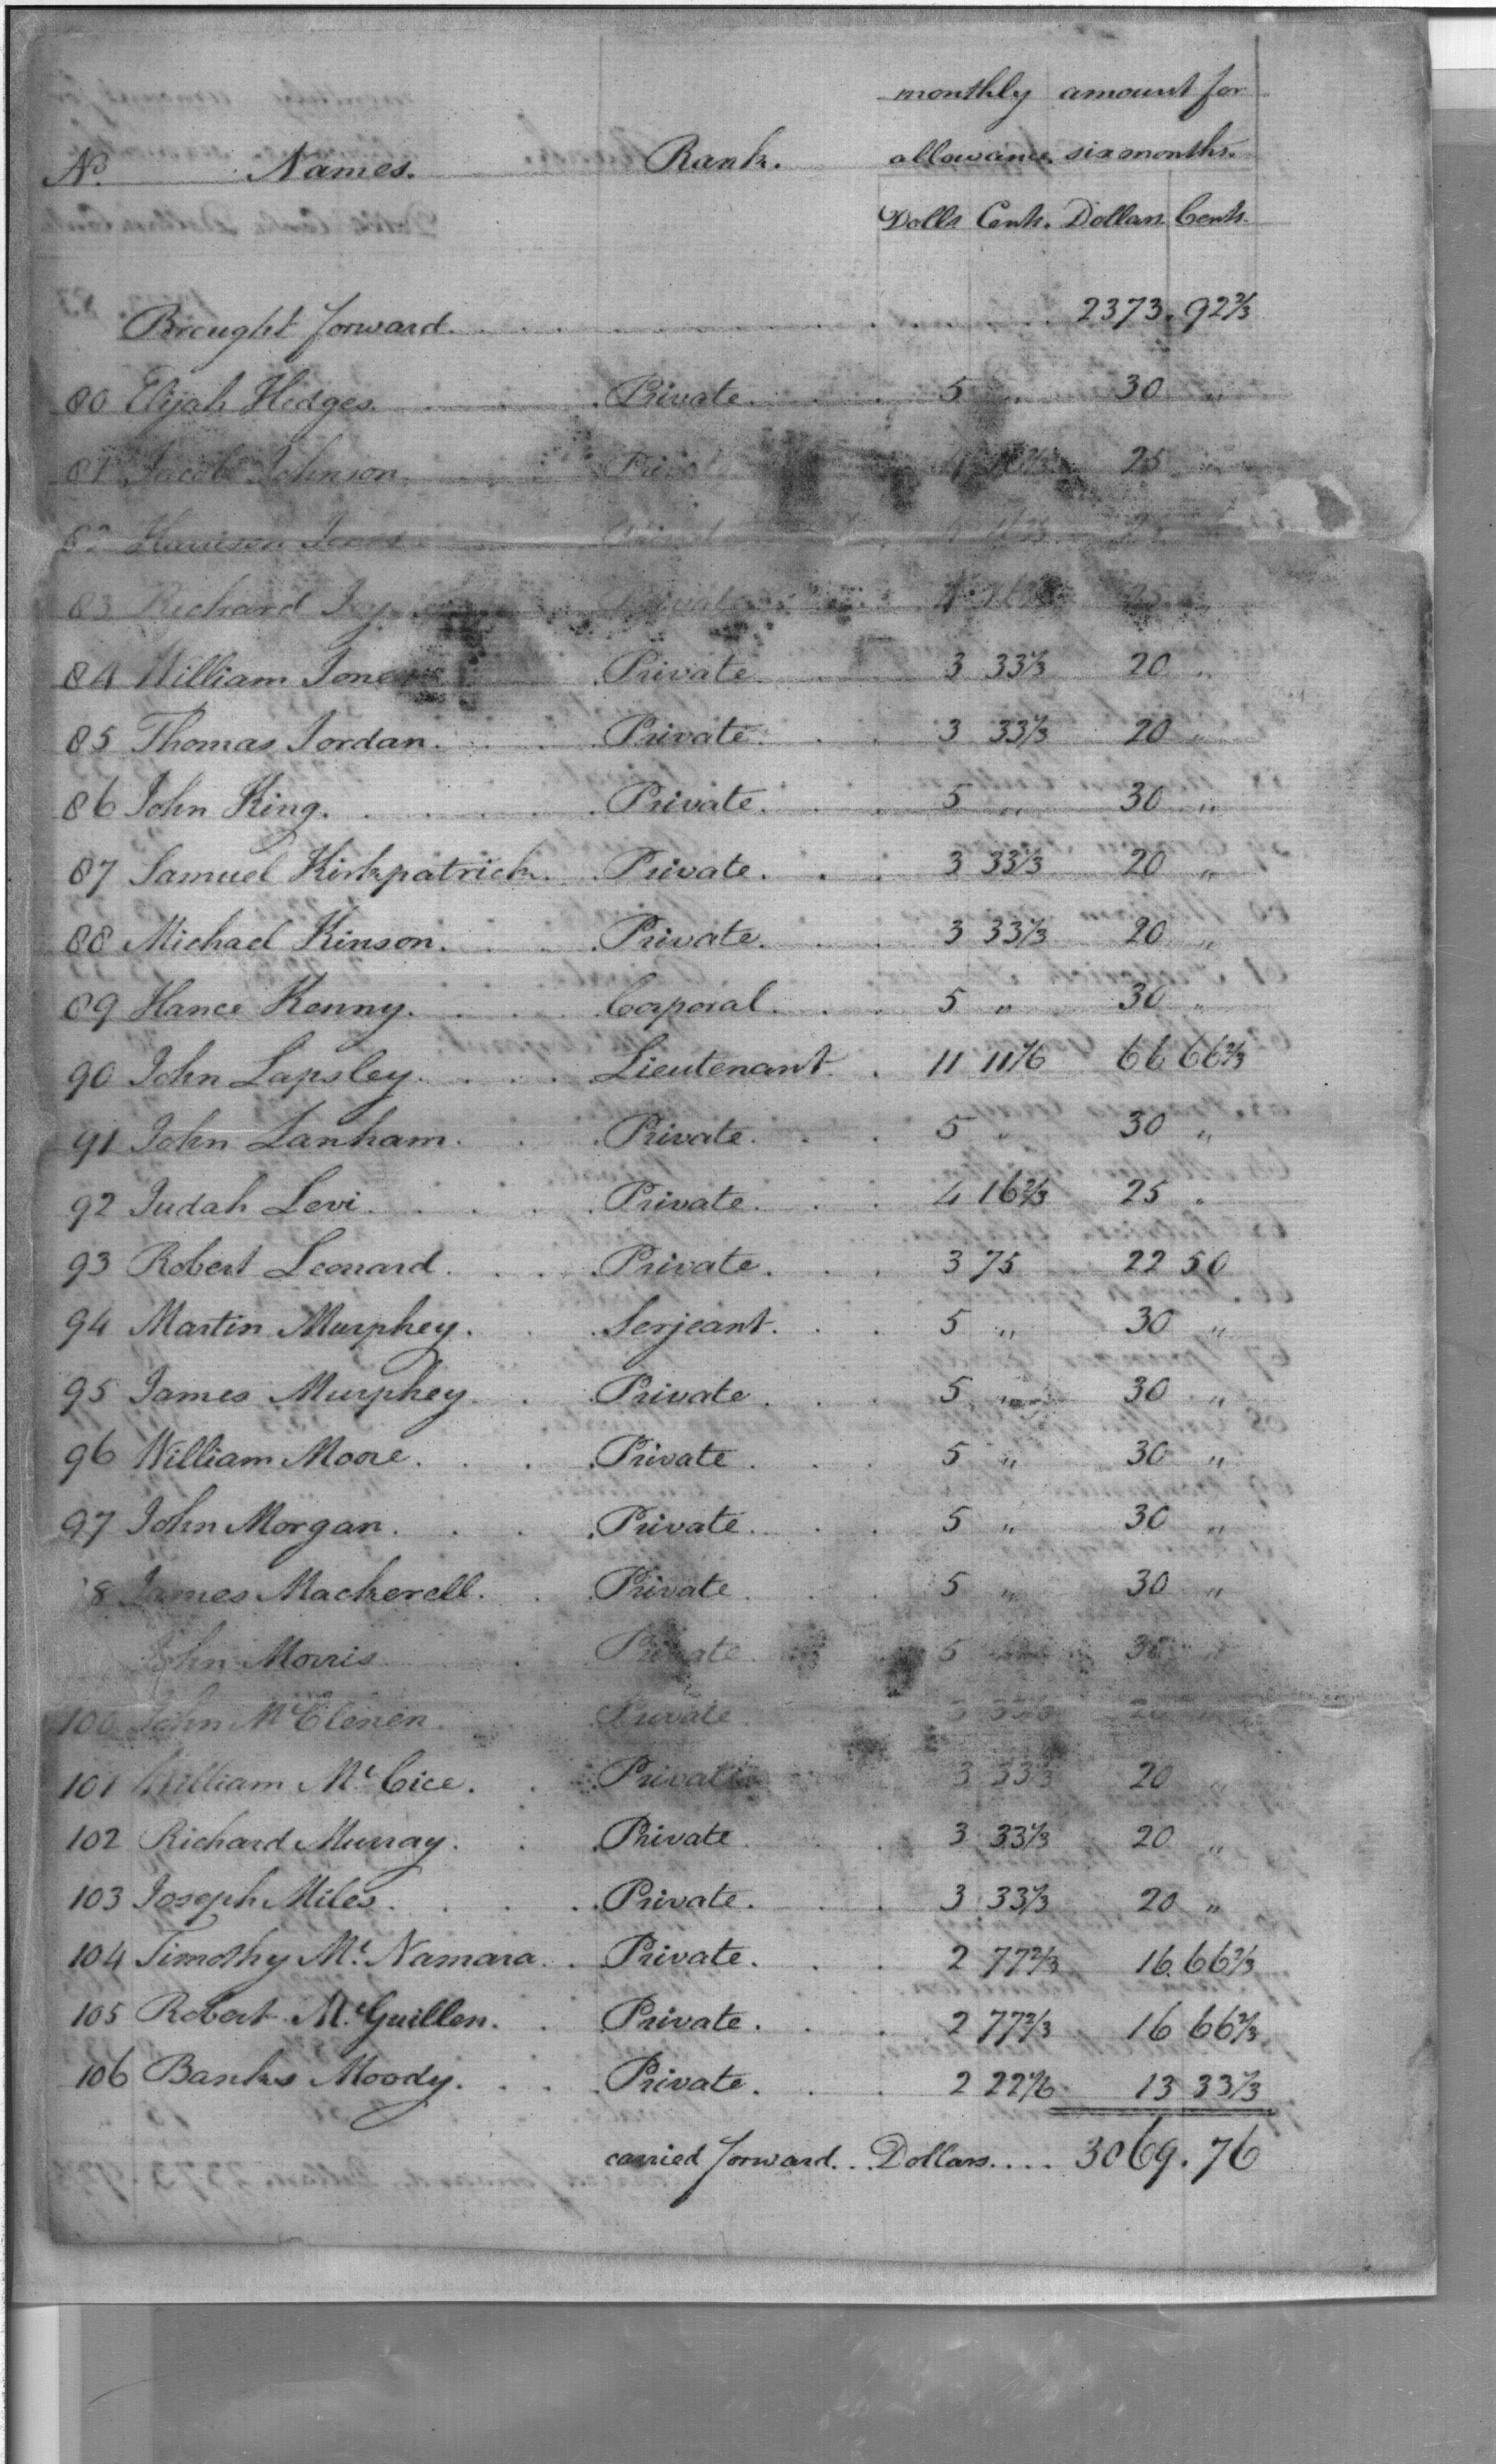 monthly amount for
No. Names. Rank. allowance. six months.
Dolls Cents. Dollars Cents.
Brought forward. 2373. 92 2/3
80 Elijah Hedges. Private. 5 " 30 "
81 Jacob Johnson. Private 4 16 2/3 25 "
82 Harrison Private 25
83 Richard Ivy Private 4 16 2/3 25 "
84 William Jones Private 3 33 1/3 20 "
85 Thomas Jordan. Private. 3 33 1/3 20 "
86 John King. Private. 5 " 30 "
87 Samuel Kirkpatrick. Private. 3 33 1/3 20 "
88 Michael Kinson. Private. 3 33 1/3 20 "
89 Hance Kenny. Corporal. 5 " 30 "
90 John Lapsley. Lieutenant. 11 11 1/6 66 66 2/3
91 John Lanham. Private. 5 " 30 "
92 Judah Levi. Private. 4 16 2/3 25 "
93 Robert Leonard. Private. 3 75 22 50
94 Martin Murphey. Serjeant. 5 " 30 "
95 James Murphey. Private. 5 " 30 "
96 William Moore. Private. 5 " 30 "
97 John Morgan. Private. 5 " 30 "
8 James Mackerell. Private. 5 " 30 "
John Morris Private. 5 30 "
100 John McClenen. Private 3 33 1/3 20
101 William McCice. Private 3 33 1/3 20 "
102 Richard Murray. Private 3 33 1/3 20 "
103 Joseph Miles. Private. 3 33 1/3 20 "
104 Timothy Mc Namara. Private. 2 77 2/3 16. 66 2/3
105 Robert McGuillen. Private. 2 77 2/3 16 66 2/3
106 Banks Moody. Private. 2 22 1/6 13 33 1/3
carried forward. Dollars.... 3069.76